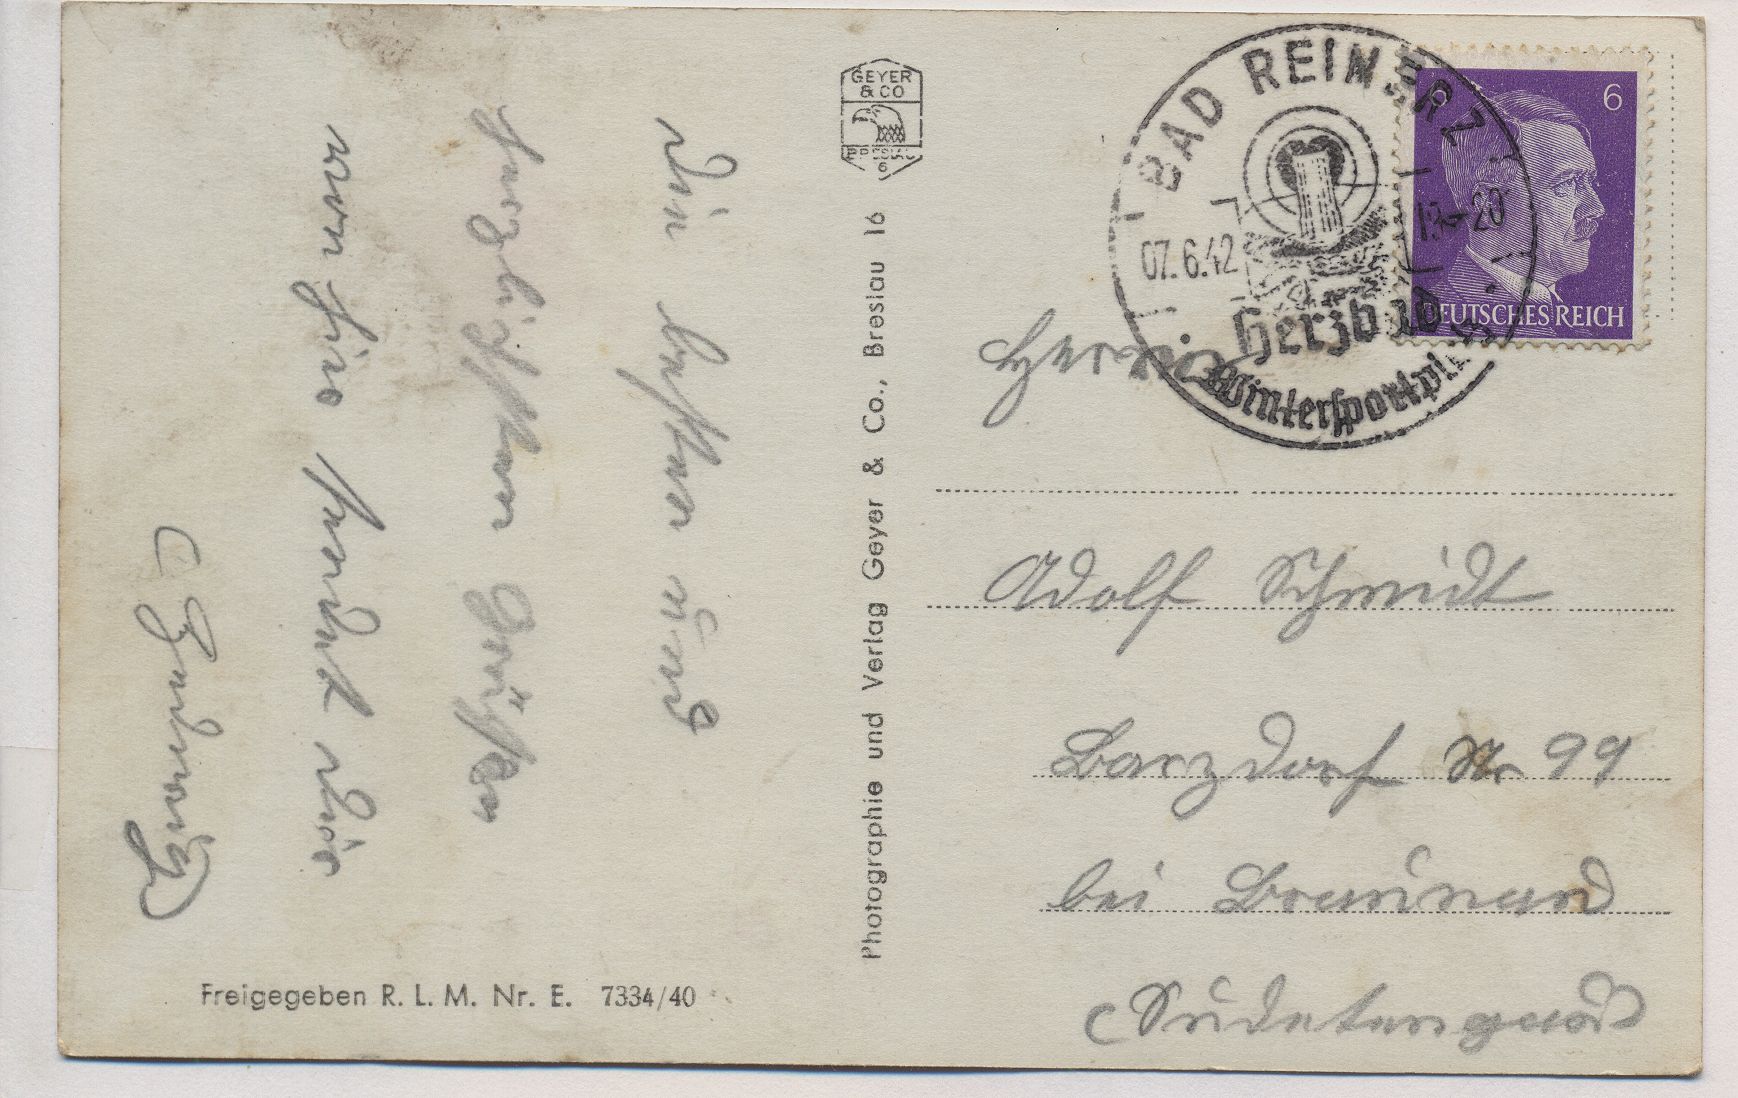 Die besten und
herzlichsten Grüße
von hier sendet dir
GEYER
& CO
BRESLAU
6
Photographie und Verlag Geyer & Co., Breslau 16
Freigegeben R. L. M. Nr. E. 7334/40
BAD REINERZ
07.6.42
Herzbad
Wintersportplatz
6
DEUTSCHES REICH
Herrn
Adolf Schmidt
Barzdorf Nr 99
bei Braunau
(Sudetengau)